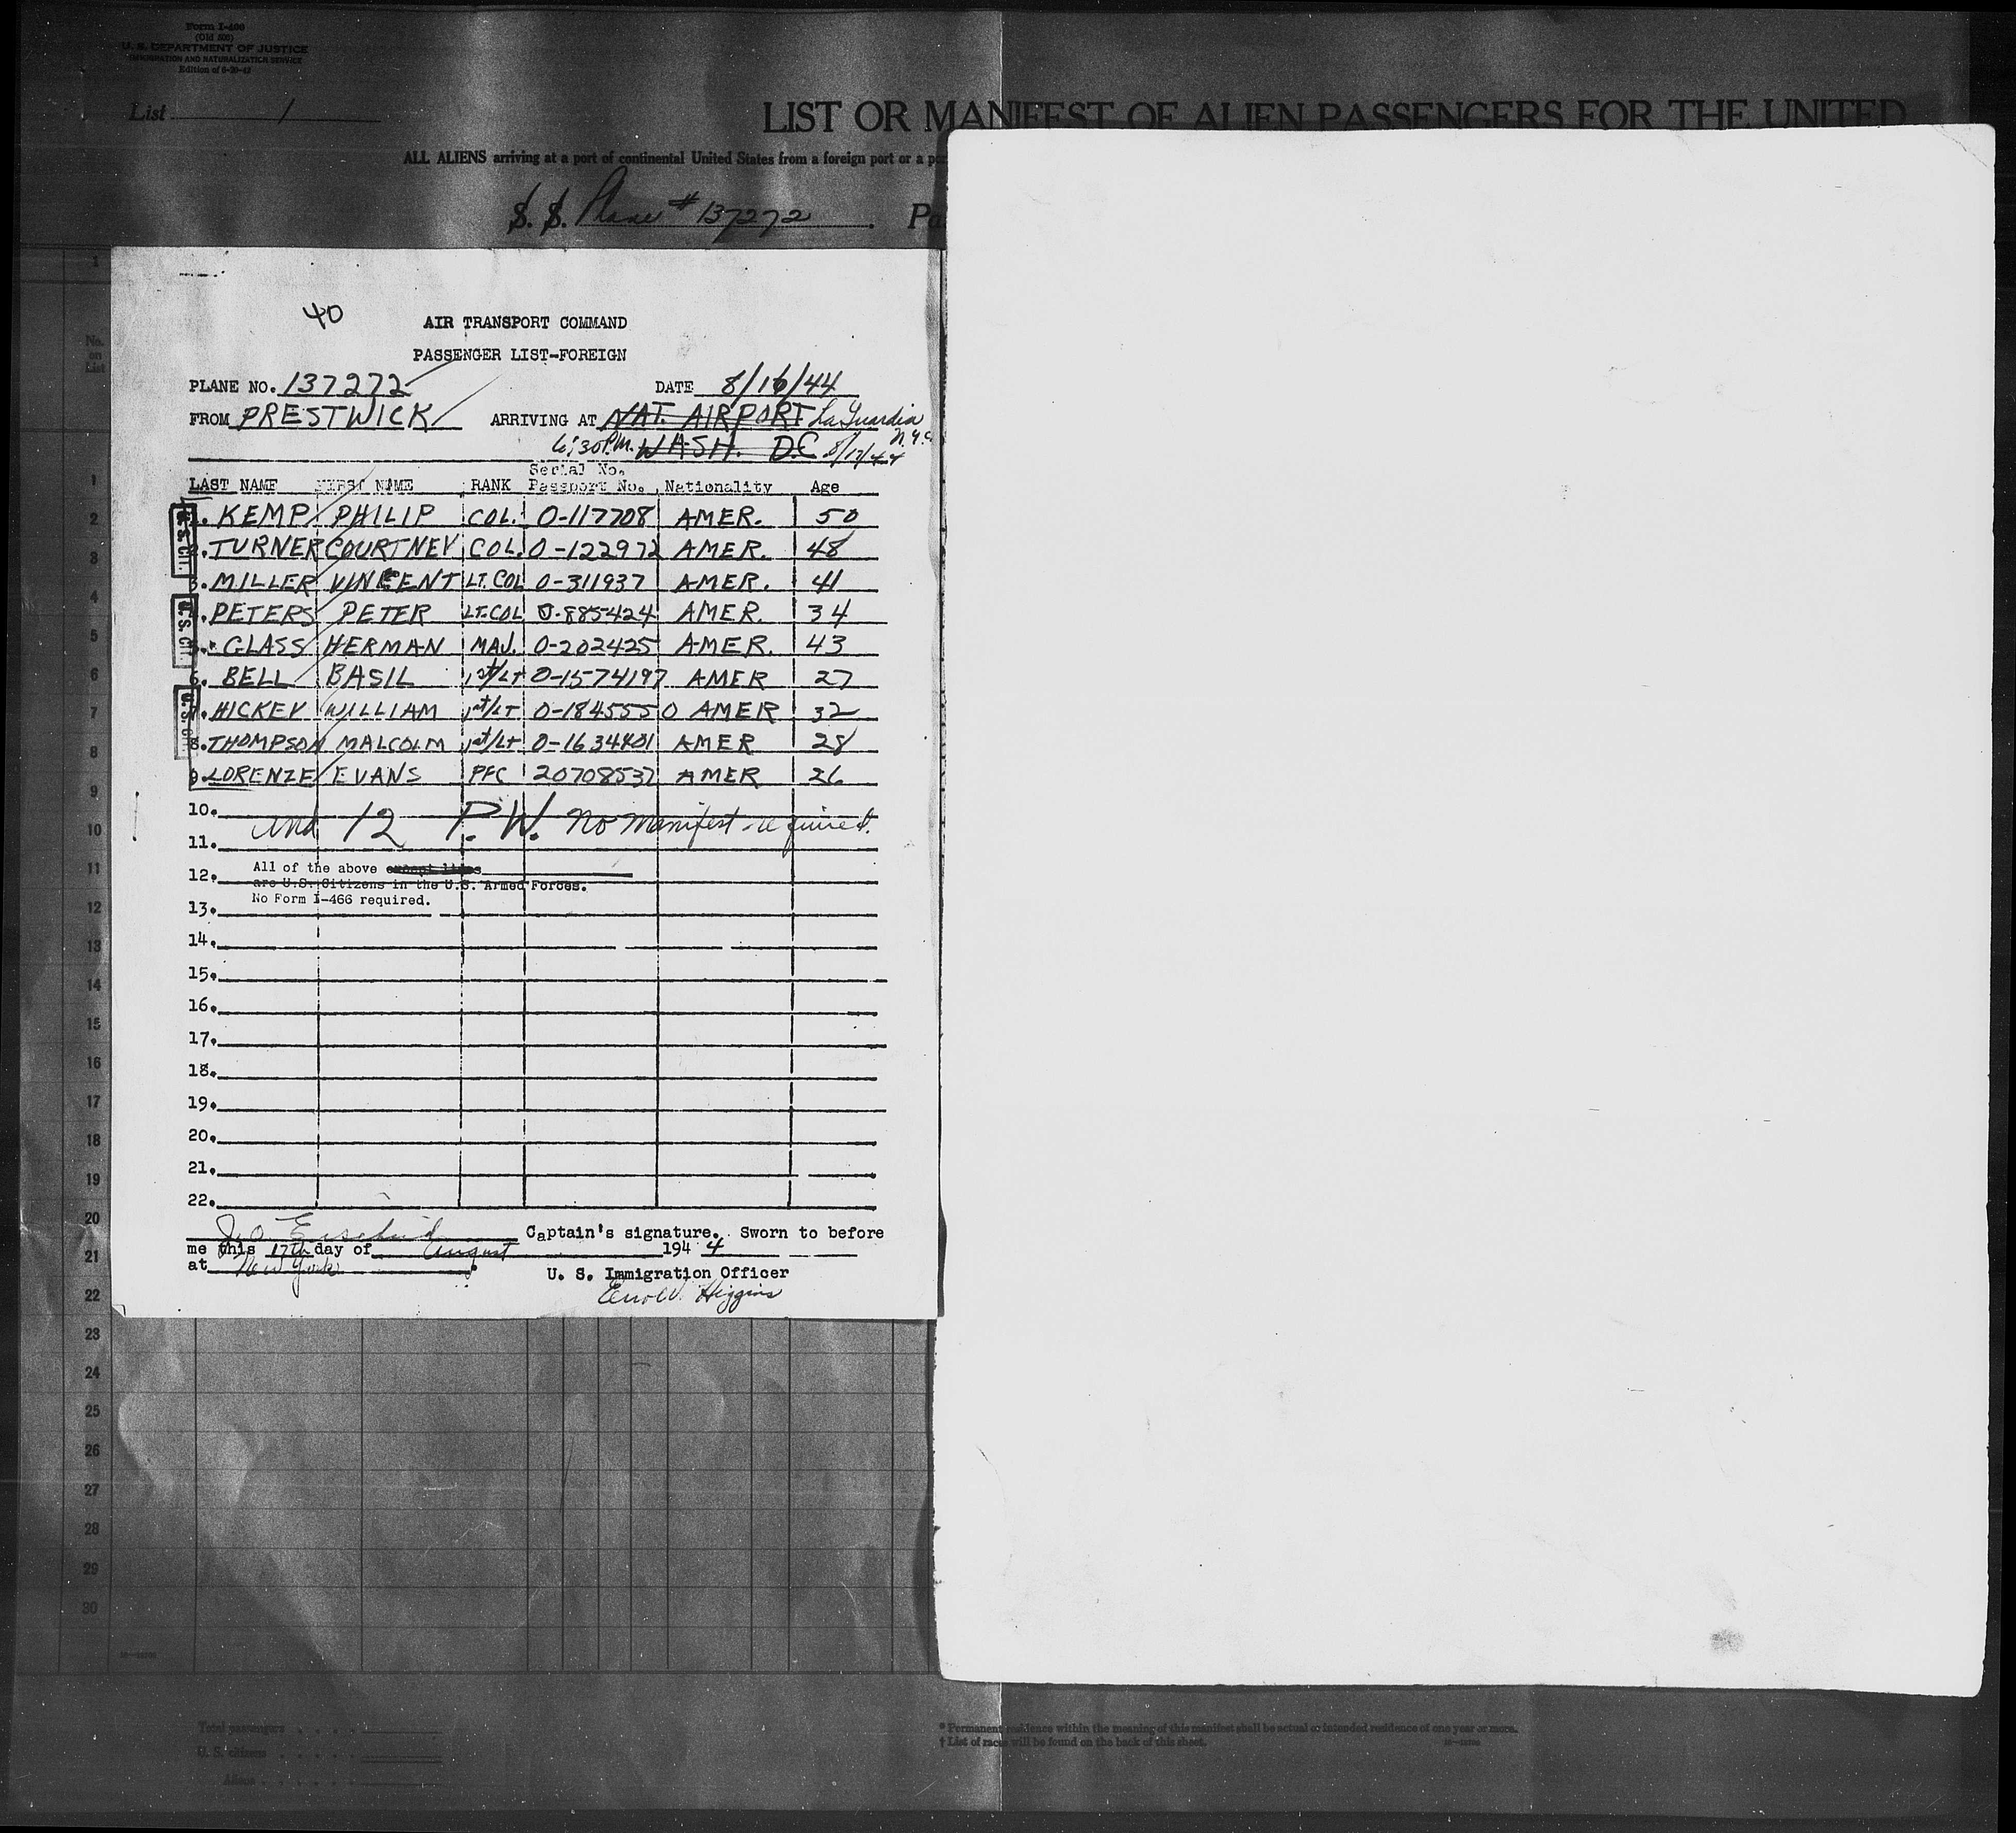 Form I-400
(Old 500)
U. S. DEPARTMENT OF JUSTICE
IMMIGRATION AND NATURALIZATION SERVICE
Edition of
List 1
LIST OR MANIFEST OF ALIEN PASSENGERS FOR THE UNITED
ALL ALIENS arriving at a port of continental United States from a foreign port or a
S. S. Plane # 137272
40
AIR TRANSPORT COMMAND
PASSENGER LIST-FOREIGN
PLANE NO. 137272 DATE 8/16/44
FROM PRESTWICK ARRIVING AT NAT. AIRPORT La Guardia
N.Y.C.
6:30 P.M. WASH. D.C. 8/17/44
LAST NAME FIRST NAME RANK Serial No. Passport No. Nationality Age
1. KEMP PHILIP COL. O-117708 AMER. 50
2. TURNER COURTNEY COL. O-122972 AMER. 48
3. MILLER VINCENT LT. COL O-311937 AMER. 41
4. PETERS PETER LT. COL O-885424 AMER. 34
5. GLASS HERMAN MAJ. O-202425 AMER. 43
6. BELL BASIL 1st/LT O-1574197 AMER 27
7. HICKEY WILLIAM 1st/LT O-1845550 AMER 32
8. THOMPSON MALCOLM 1st/LT O-1634401 AMER 28
9. LORENZE EVANS PFC 20708537 AMER 26
10. and 12 P.W. No manifest required.
11.
12. All of the above except lines
are U.S. Citizens in the U.S. Armed Forces.
No Form I-466 required.
13.
14.
15.
16.
17.
18.
19.
20.
21.
22.
Captain's signature. Sworn to before
me this 17th day of August 1944
at New York
U. S. Immigration Officer
Higgins
U.S. Cit.
U.S. Cit.
U.S. Cit.
No. on List
1
1
2
3
4
5
6
7
8
9
10
11
12
13
14
15
16
17
18
19
20
21
22
23
24
25
26
27
28
29
30
Total passengers
U. S. citizens
Aliens
* Permanent residence within the meaning of this manifest shall be actual or intended residence of one year or more.
† List of races will be found on the back of this sheet.